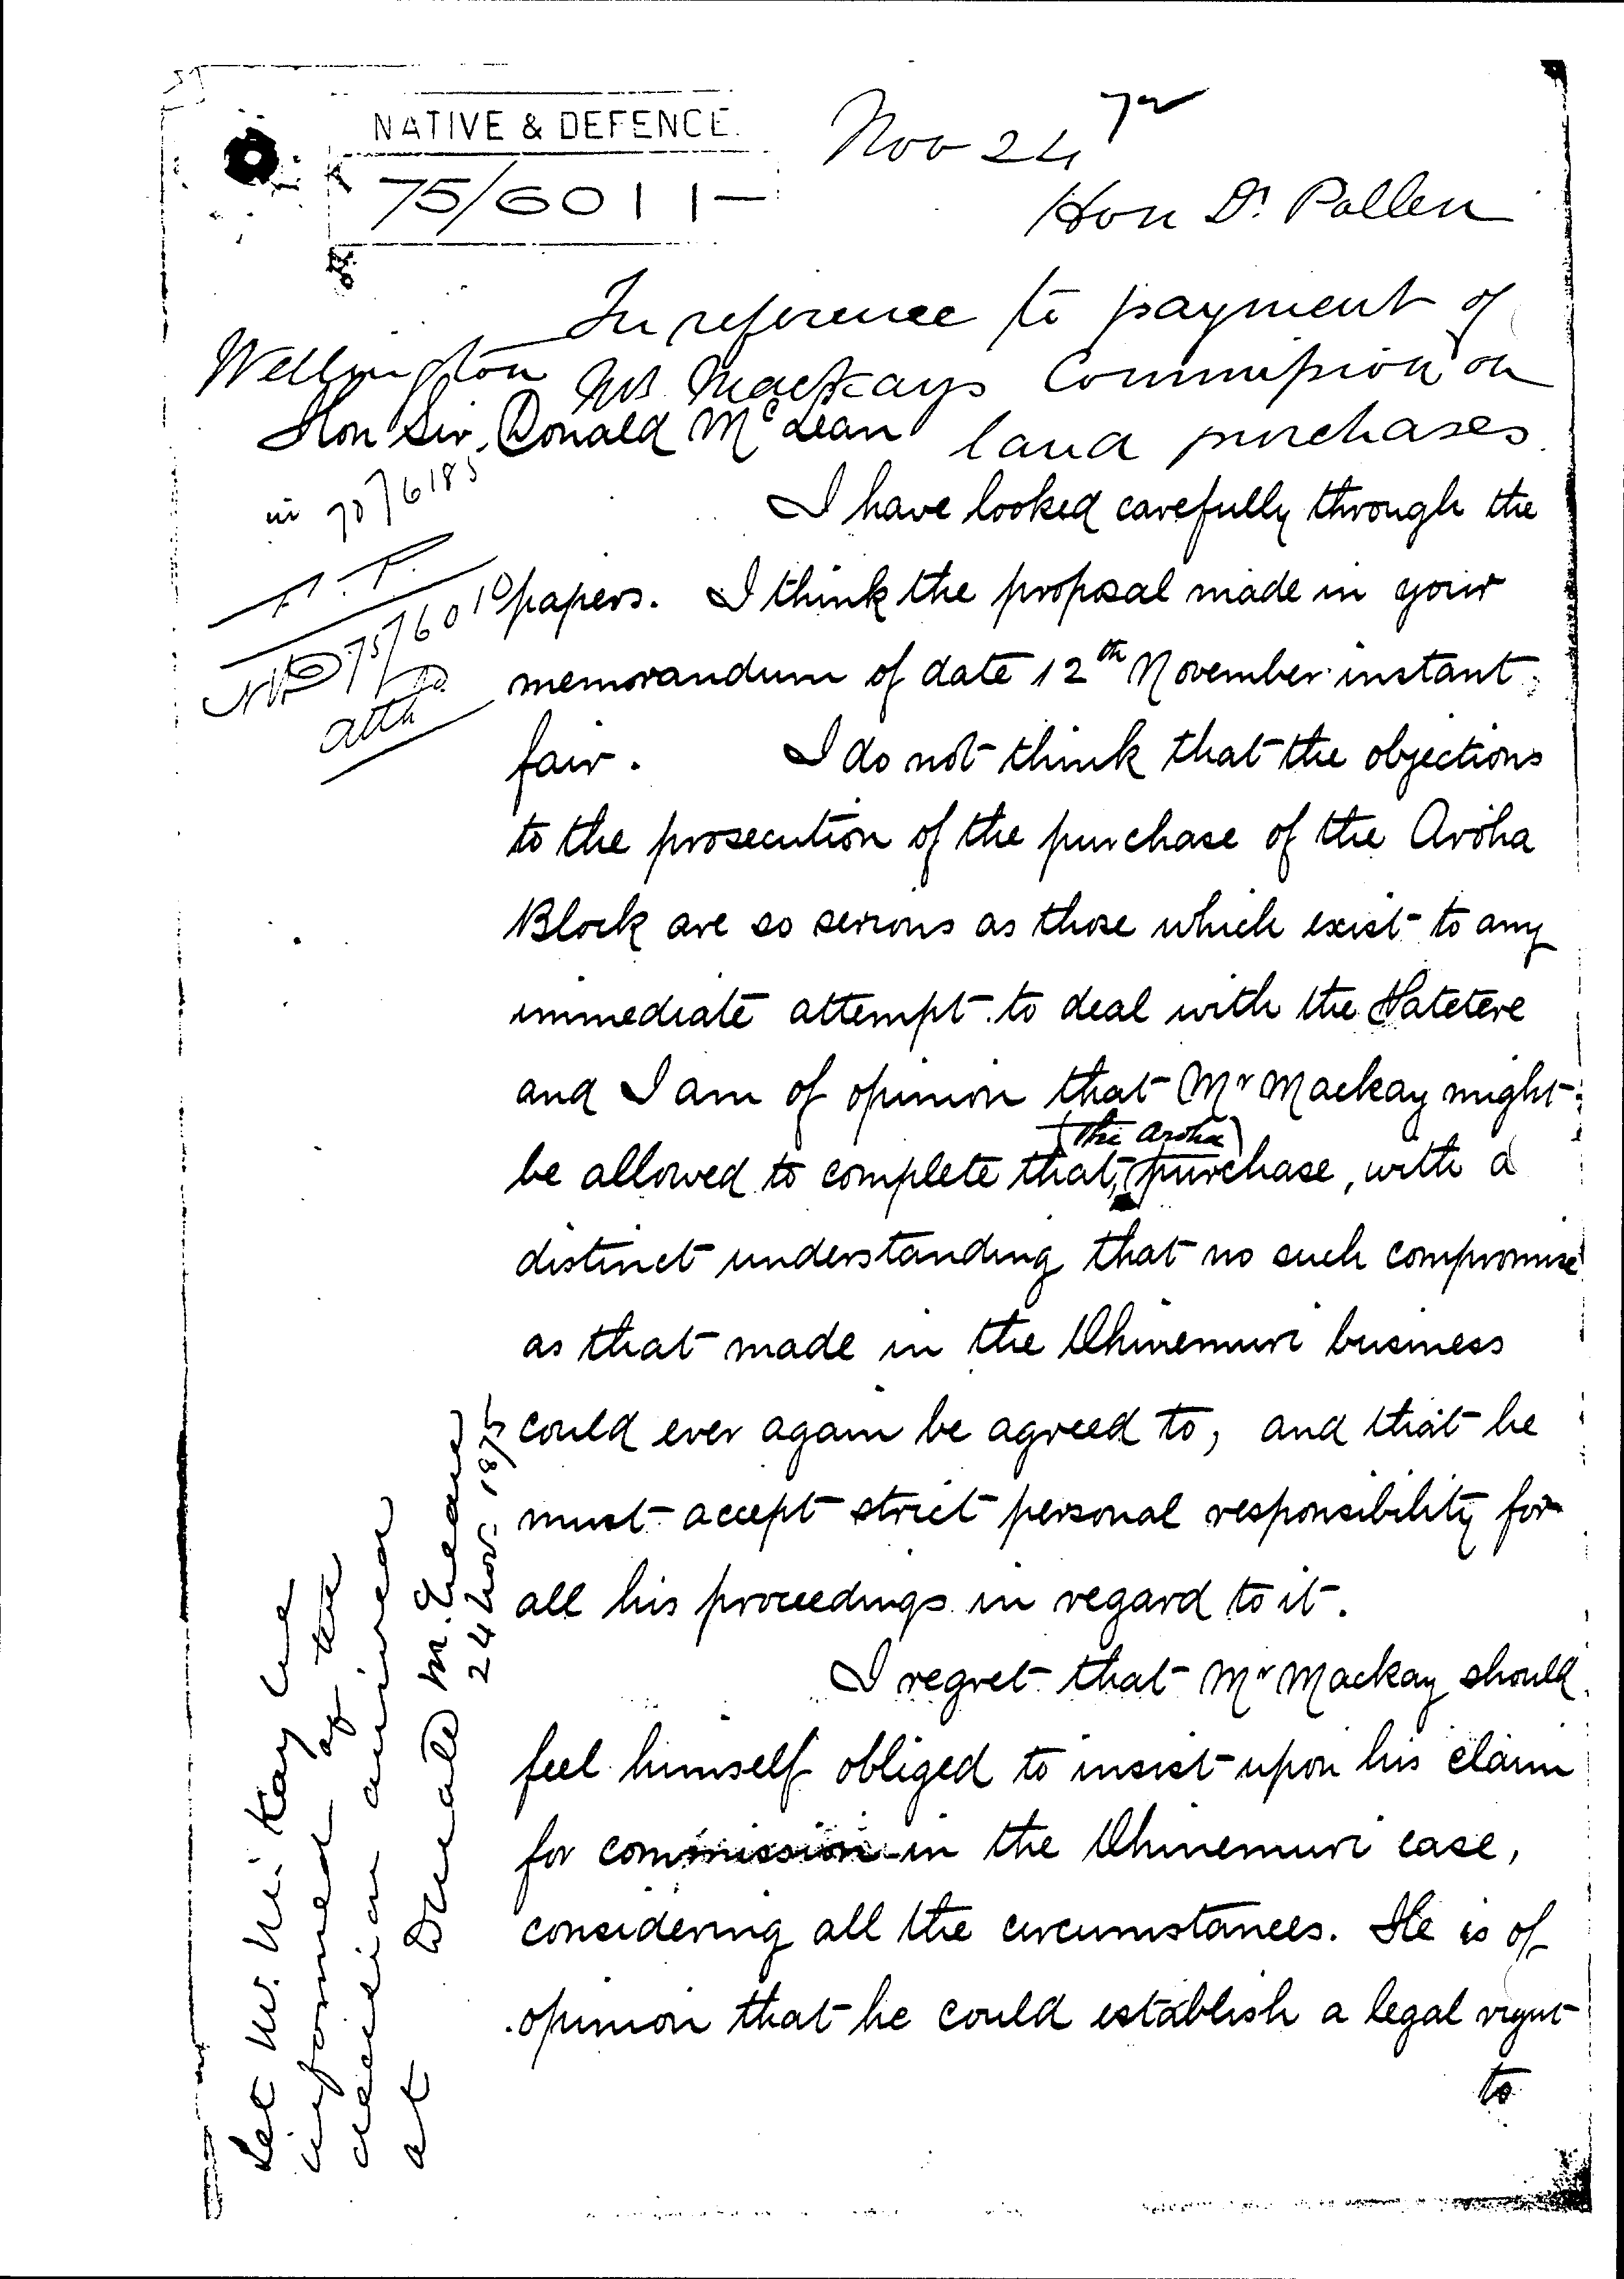 NATIVE & DEFENCE.
75/6011
Nov 24
Hon Dr. Pollen
In reference to payment of
Mr Mackays Commission on
land purchases.
Wellington
Hon Sir Donald McLean
I have looked carefully through the
papers. I think the proposal made in your
memorandum of date 12th November instant,
fair. I do not think that the objections
to the prosecution of the purchase of the Aroha
Block are so serious as those which exist to any
immediate attempt to deal with the Patetere
and I am of opinion that Mr Mackay might
be allowed to complete that, (the Aroha) purchase, with a
distinct understanding that no such compromise
as that made in the Ohinemuri business
could ever again be agreed to, and that he
must accept strict personal responsibility for
all his proceedings in regard to it.
I regret that Mr Mackay should
feel himself obliged to insist upon his claim
for commission in the Ohinemuri case,
considering all the circumstances. He is of
opinion that he could establish a legal right
to
in 75/6185
75/6010
attd
Let Mr. McKay be
informed of the
decision arrived
at Donald McLean
24 Nov. 1875